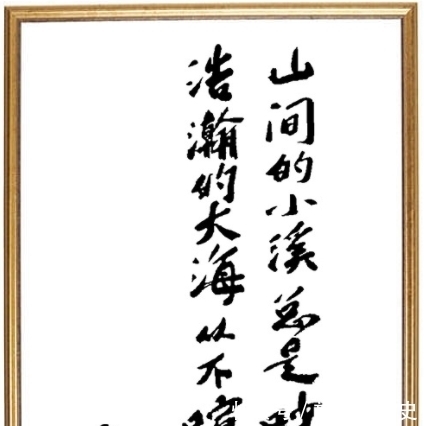 山间的小溪总是
浩瀚的大海从不
史